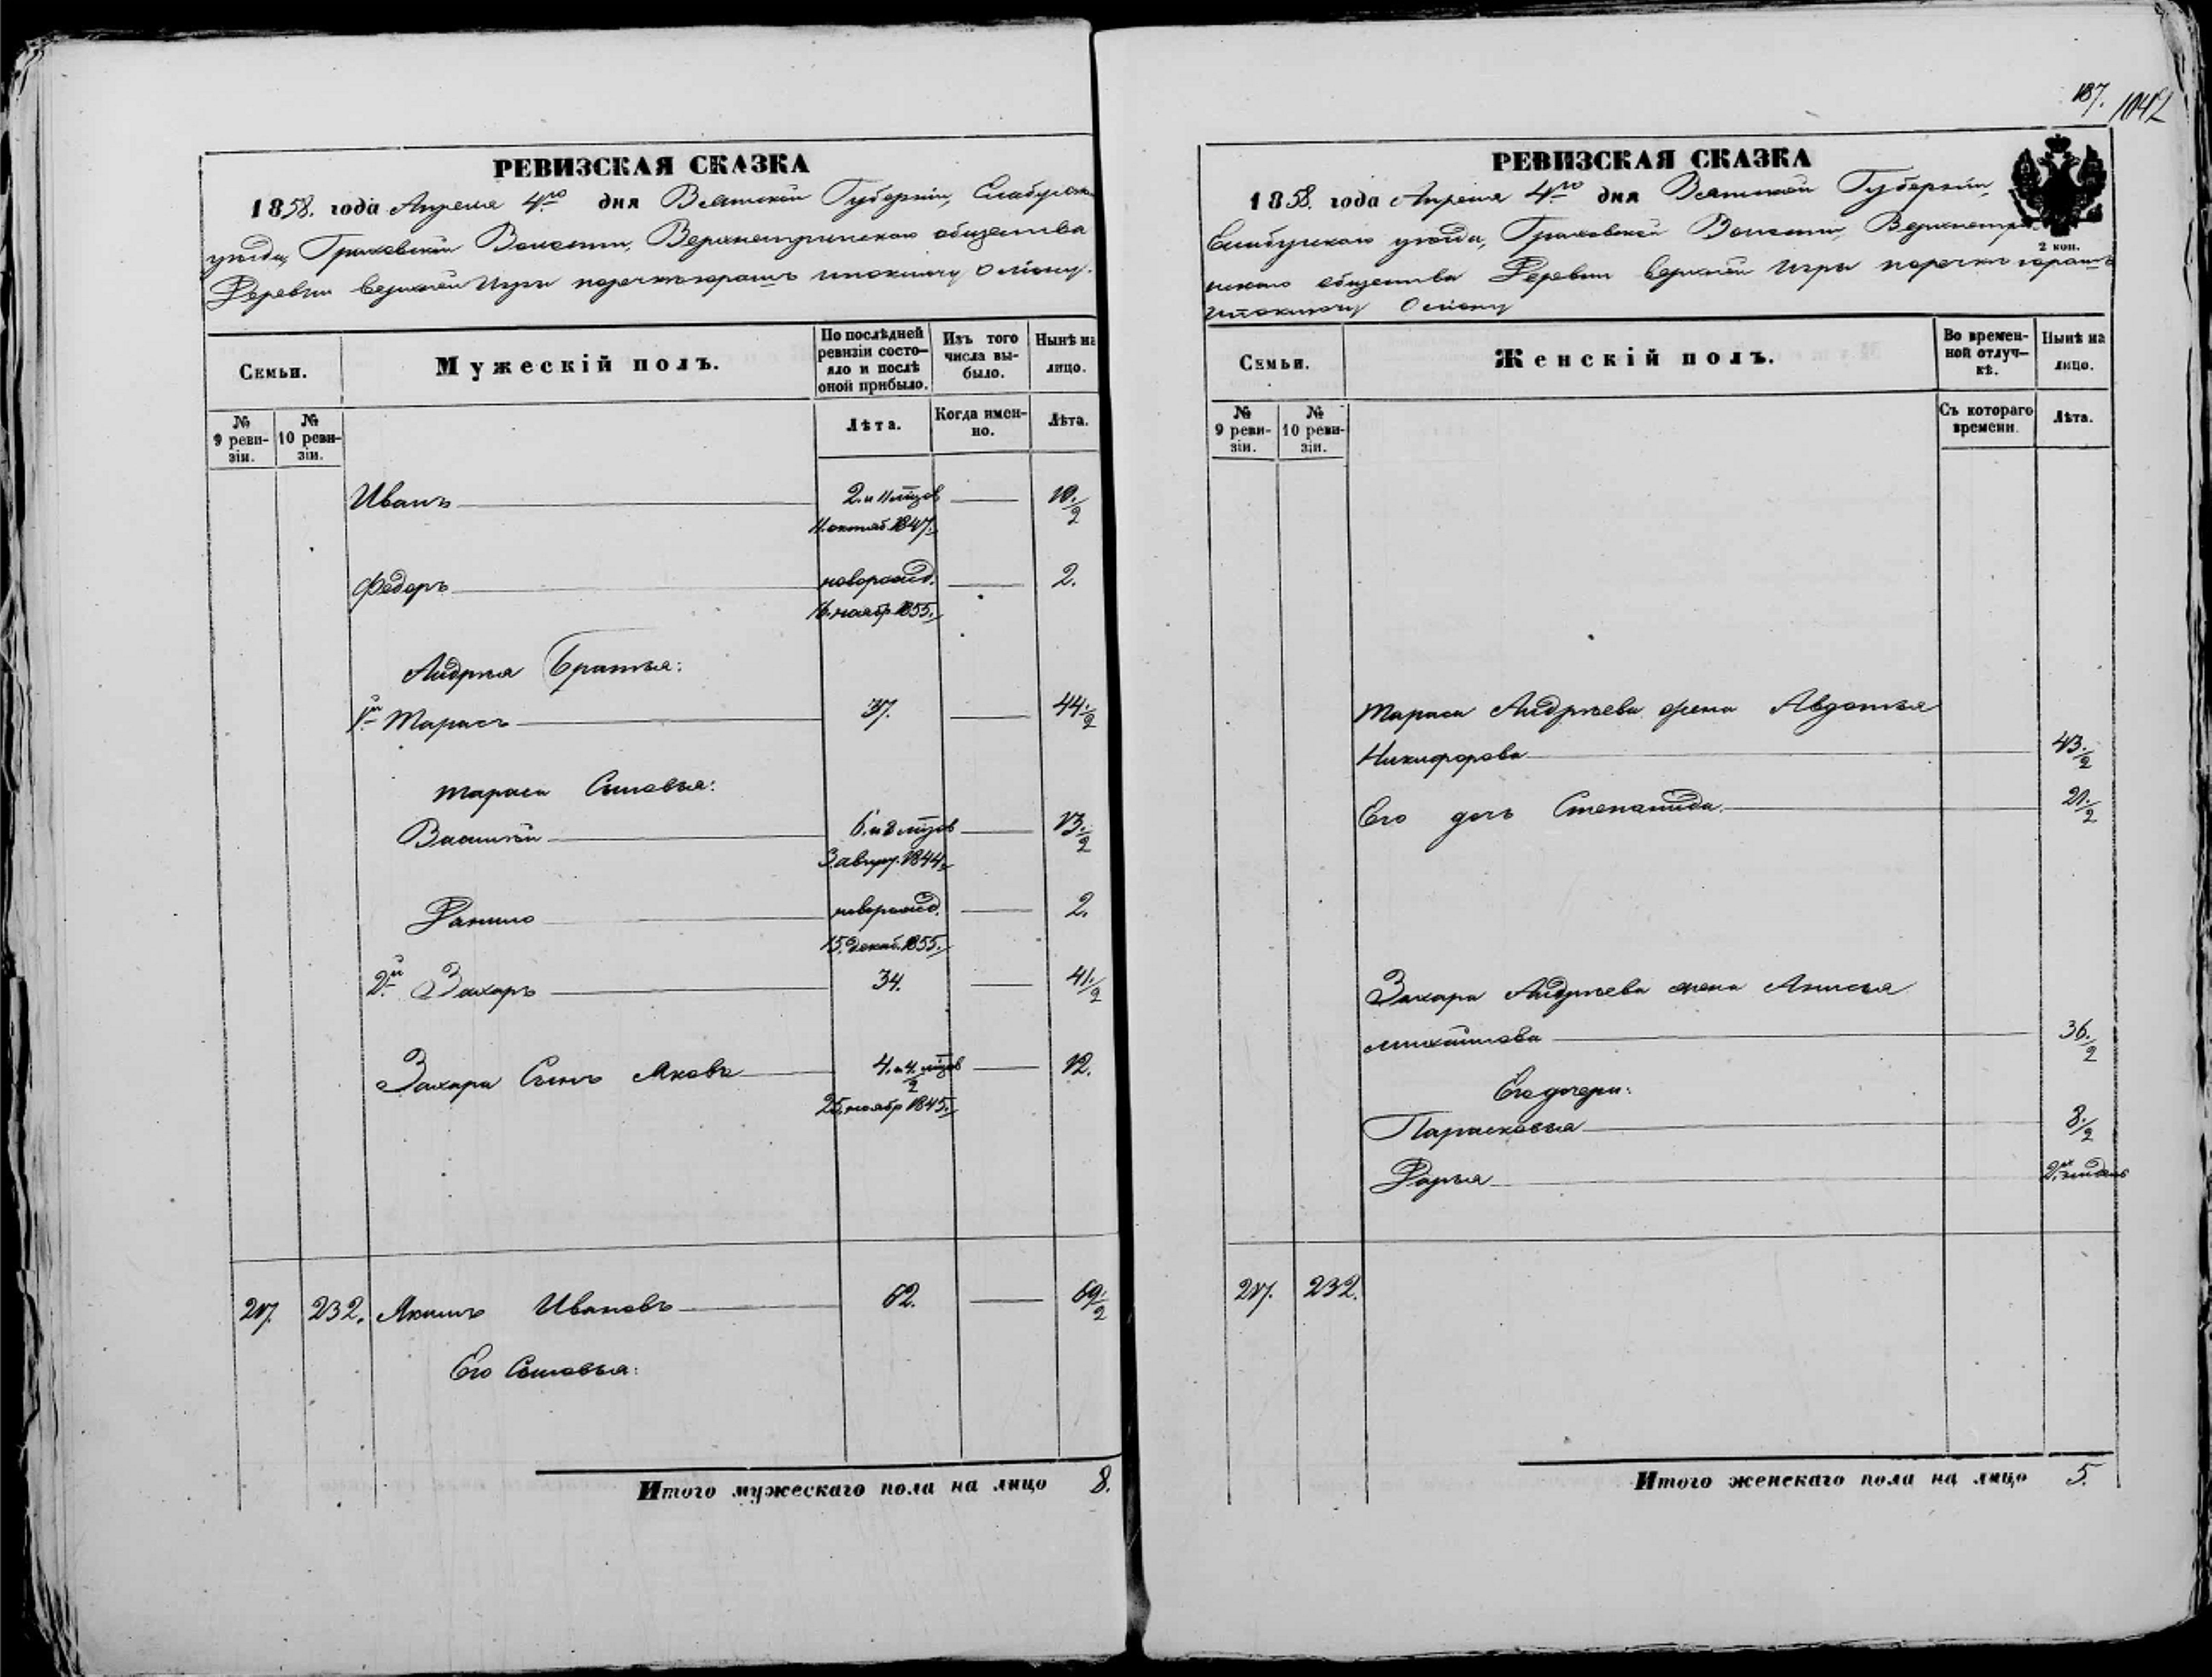 РЕВИЗСКАЯ СКАЗКА
1858. года Апреля 4го дня Вятской Губернiи, Елабужска
уѣзда, Граховской Волости, Верхнеигринскаго общества
Деревни верхней Игры
Семьи.
Мужескiй полъ.
По послѣдней ревизiи состояло и послѣ оной прибыло.
Изъ того числа выбыло.
Нынѣ на лицо.
№ 9 ревизiи.
№ 10 ревизiи.
Лѣта.
Когда именно.
Лѣта.
Иванъ 2. и 11 мѣсцов 10.½
11. октяб. 1847.
Федоръ новорожд. 2.
16. ноябр 1855.
Андрея Братья:
1й Тарасъ 37. 44.½
Тараса Сыновья:
Василей 6. и 8 мѣсцов 13.½
3. авгус. 1844.
Данило новорожд. 2.
15. декаб. 1855.
2й Захаръ 34. 41.½
Захара Сынъ Яковъ 4. и 4.½ мѣсцов 12.
25. ноябр 1845.
217. 232. Якимъ Ивановъ 62. 69.½
Его Сыновья:
Итого мужескаго пола на лицо 8.
187. 1042
РЕВИЗСКАЯ СКАЗКА
1858. года Апреля 4го дня Вятской Губернiи,
Елабужскаго уѣзда, Граховской Волости, Верхнеигри
нскаго общества Деревни верхней Игры
2 коп.
Семьи.
Женскiй полъ.
Во временной отлучкѣ.
Нынѣ на лицо.
№ 9 ревизiи.
№ 10 ревизiи.
Съ котораго времени.
Лѣта.
Тараса Андрѣева жена Авдотья
Никифорова 43.½
Его дочь Степанида 21.½
Захара Андрѣева жена Анисья
Михайлова 36.½
Его дочери:
Парасковья 8.½
Дарья
217. 232.
Итого женскаго пола на лицо 5.